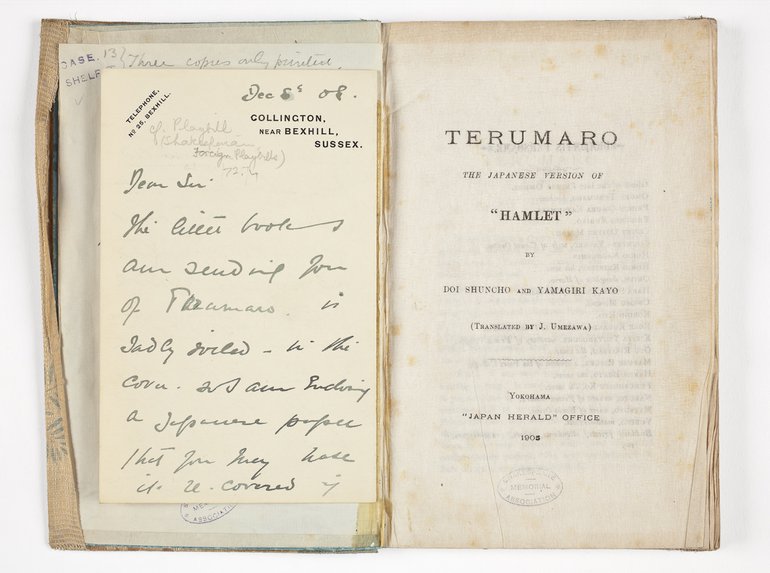 CASE. 13
Three copies only printed.
SHELF
TELEPHONE.
No 35, BEXHILL.
Dec 8 08.
COLLINGTON,
NEAR BEXHILL,
SUSSEX.
cf. Playbill
Foreign Playbills)
72.
Dear Sir
The little book I
am sending you
of Teramaro. is
sadly soiled - in the
cover. so I am Enclosing
a Japanese paper
that you may have
it re-covered if
ASSOCIATION
TERUMARO
THE JAPANESE VERSION OF
"HAMLET"
BY
DOI SHUNCHO AND YAMAGIRI KAYO
(TRANSLATED BY J. UMEZAWA)
YOKOHAMA
"JAPAN HERALD" OFFICE
1905
MEMORIAL
ASSOCIATION